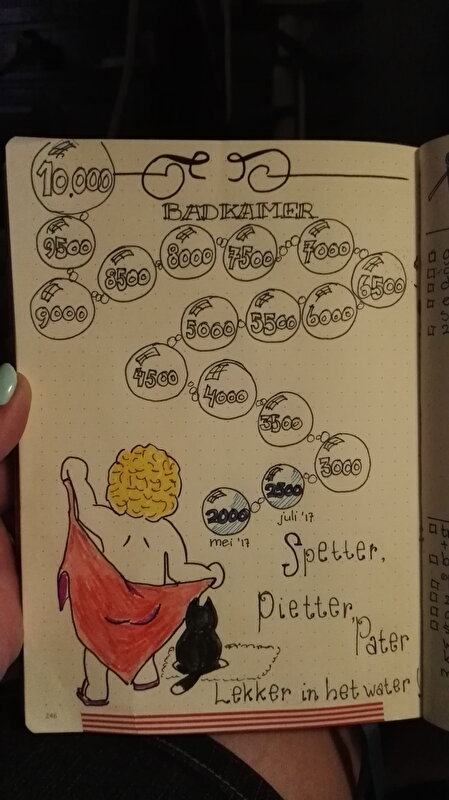 10.000
BADKAMER
9500 8500 8000 7500 7000
9000 5000 5500 6000 6500
4500 4000
3500
3000
2000 2500
mei '17 juli '17
Spetter,
Pietter,
Pater
Lekker in het water!
246